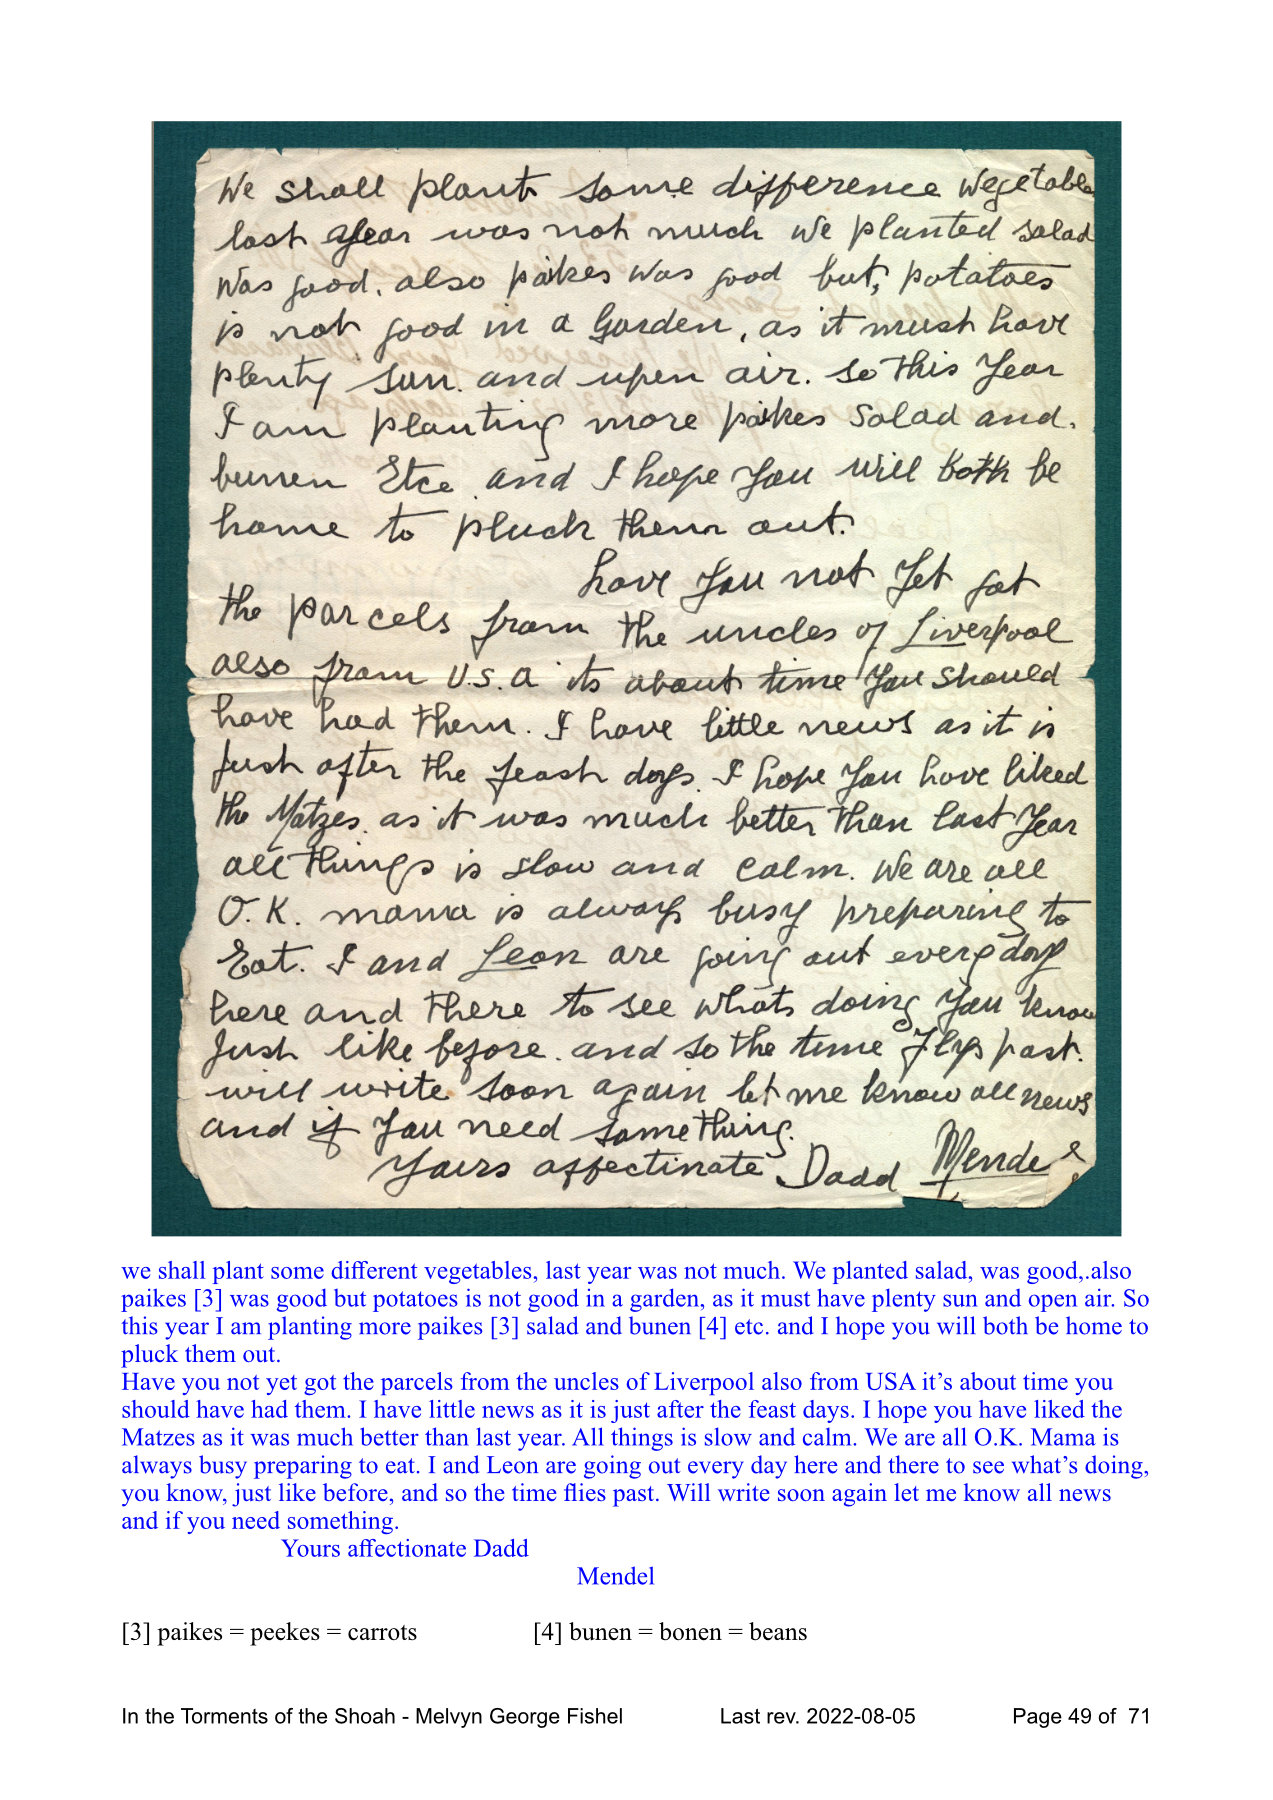 We shall plant some difference wegetables
last year was not much We planted salad
Was good. also paikes was good but, potatoes
is not good in a Garden, as it must have
plenty sun. and upen air. so this Year
I am planting more paikes salad and.
bunen Etce. and I hope You will both be
home to pluck them out.
have You not Yet got
the parcels from the uncles of Liverpool
also from U.S.A its about time You should
have had them. I have little news as it is
Just after the feast days. I hope You have liked
the Matzes. as it was much better than last Year
all things is slow and calm. We are all
O.K. mama is always busy preparing to
Eat. I and Leon are going out every day
here and there to see whats doing You know
Just like before. and so the time flys past.
will write soon again let me know all news
and if You need something.
Yours affectinate Dadd Mendel
we shall plant some different vegetables, last year was not much. We planted salad, was good,.also
paikes [3] was good but potatoes is not good in a garden, as it must have plenty sun and open air. So
this year I am planting more paikes [3] salad and bunen [4] etc. and I hope you will both be home to
pluck them out.
Have you not yet got the parcels from the uncles of Liverpool also from USA it’s about time you
should have had them. I have little news as it is just after the feast days. I hope you have liked the
Matzes as it was much better than last year. All things is slow and calm. We are all O.K. Mama is
always busy preparing to eat. I and Leon are going out every day here and there to see what’s doing,
you know, just like before, and so the time flies past. Will write soon again let me know all news
and if you need something.
Yours affectionate Dadd
Mendel
[3] paikes = peekes = carrots [4] bunen = bonen = beans
In the Torments of the Shoah - Melvyn George Fishel Last rev. 2022-08-05 Page 49 of 71